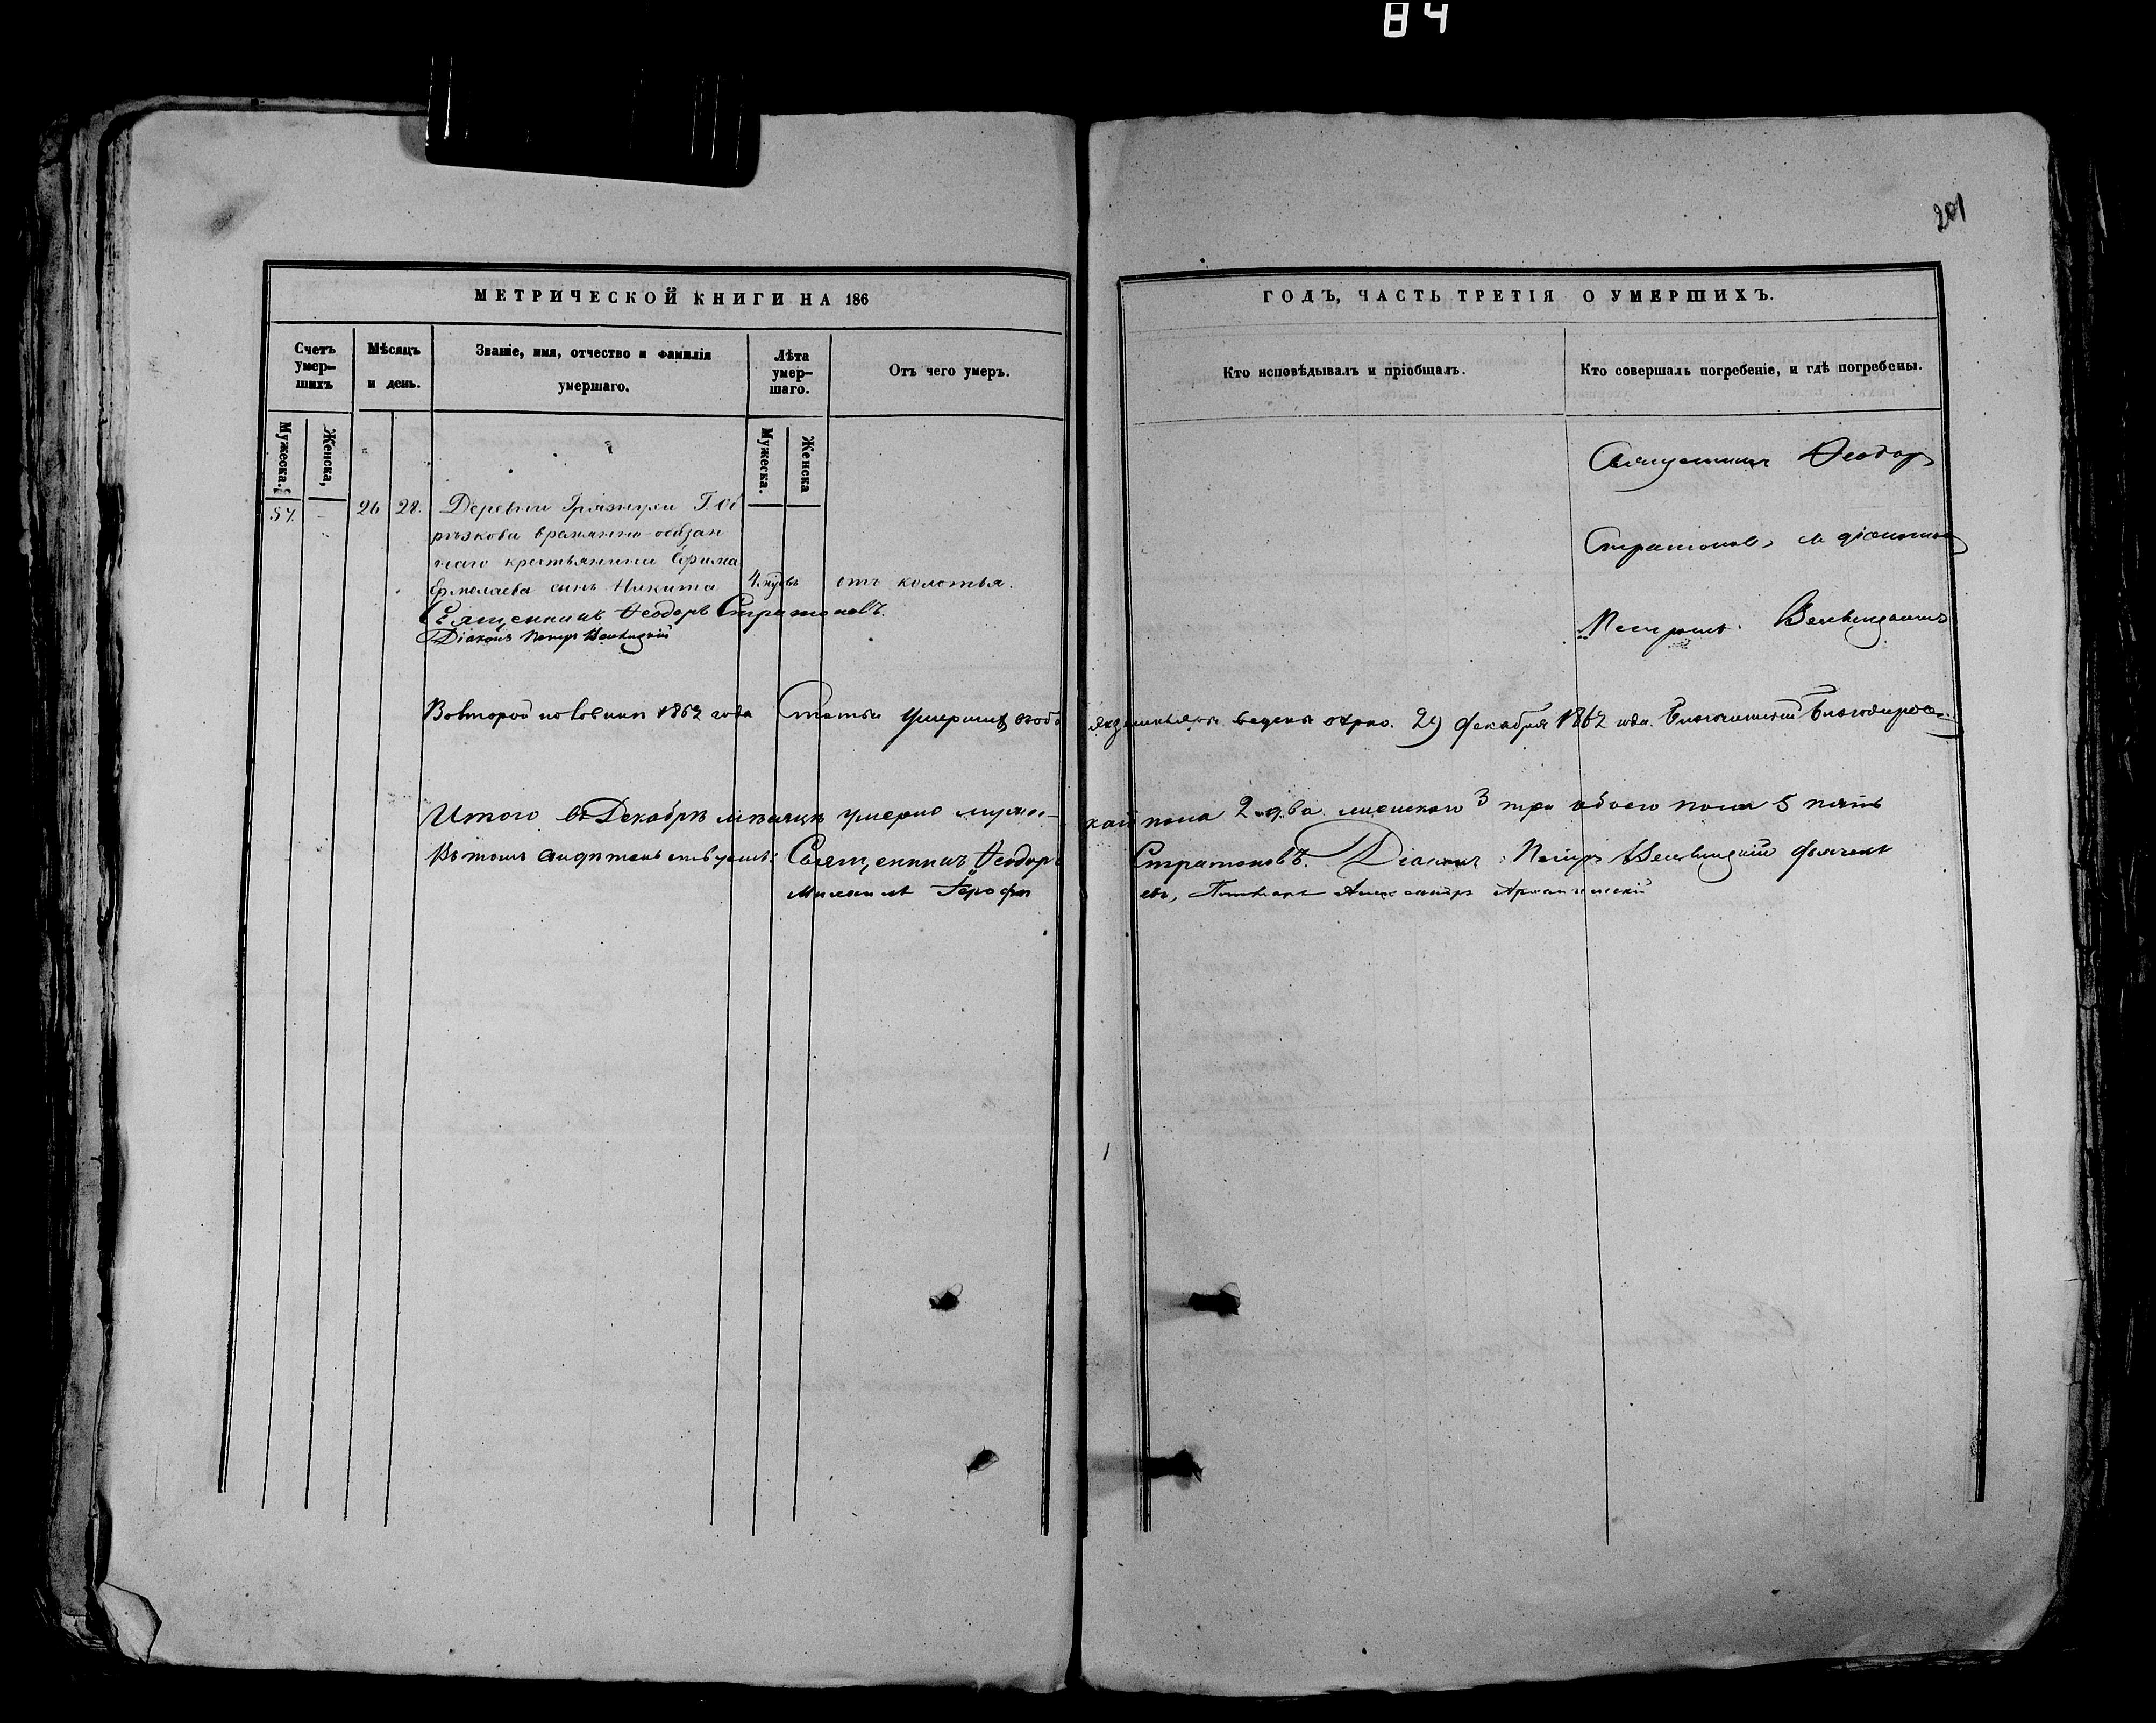 84
201
МЕТРИЧЕСКОЙ КНИГИ НА 186
ГОДЪ, ЧАСТЬ ТРЕТІЯ О УМЕРШИХЪ.
Счетъ умер-шихъ
Мѣсяцъ и день.
Званіе, имя, отчество и фамилія умершаго.
Лѣта умер-шаго.
Отъ чего умеръ.
Кто исповѣдывалъ и пріобщалъ.
Кто совершалъ погребеніе, и гдѣ погребены.
Мужеска.
Женска,
Мужеска.
Женска
57. 26 28. Деревни Грязнухи Г. Об
рѣзкова временно-обязан
наго крестьянина Ефима
Ермолаева сынъ Никита
отъ колотья.
Священникъ Ѳеодоръ Стратоновъ.
Діаконъ Петръ
Священникъ Ѳеодоръ
Стратоновъ съ діакономъ
Петромъ
Во второй половинѣ 1862 года Статьи умершихъ
ведены 29 декабря 1862 года.
Итого въ Декабрѣ мѣсяцѣ умерло мужес-
каго пола 2 два женскаго 3 три обоего пола 5 пять
Въ томъ Священникъ Ѳеодоръ
Стратоновъ. Діаконъ Петръ Дьячекъ
Михаилъ Ѳерофѣ
евъ, Пономарь Александръ